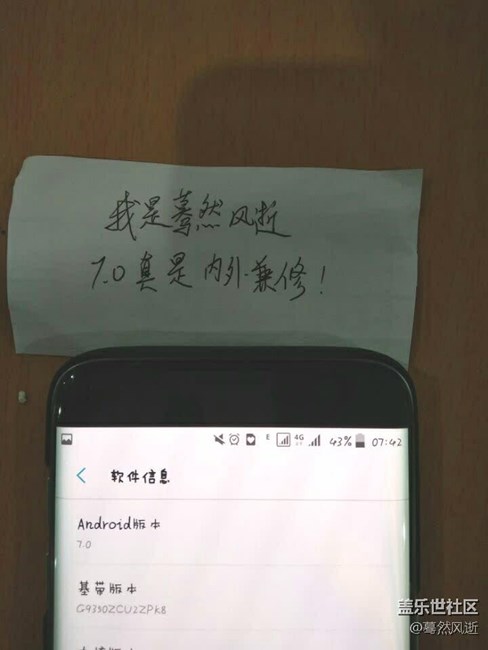 我是蓦然风逝
7.0真是内外兼修！
E 4G 43% 07:42
软件信息
Android版本
7.0
基带版本
G9350ZCU2ZPK8
盖乐世社区
@蓦然风逝